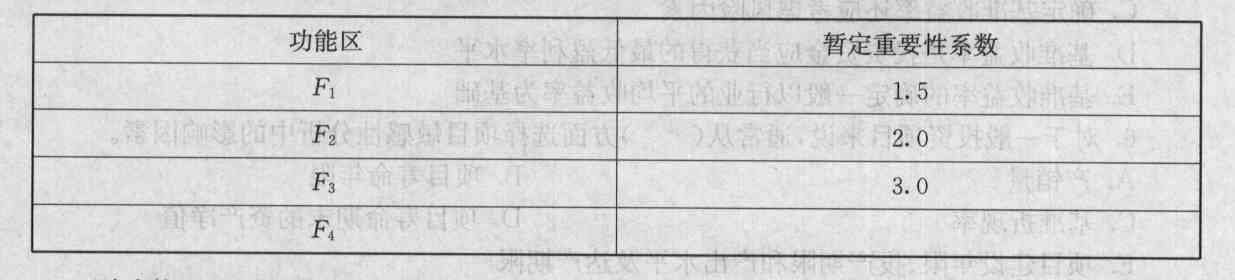 功能区 暂定重要性系数
F₁ 1.5
F₂ 2.0
F₃ 3.0
F₄